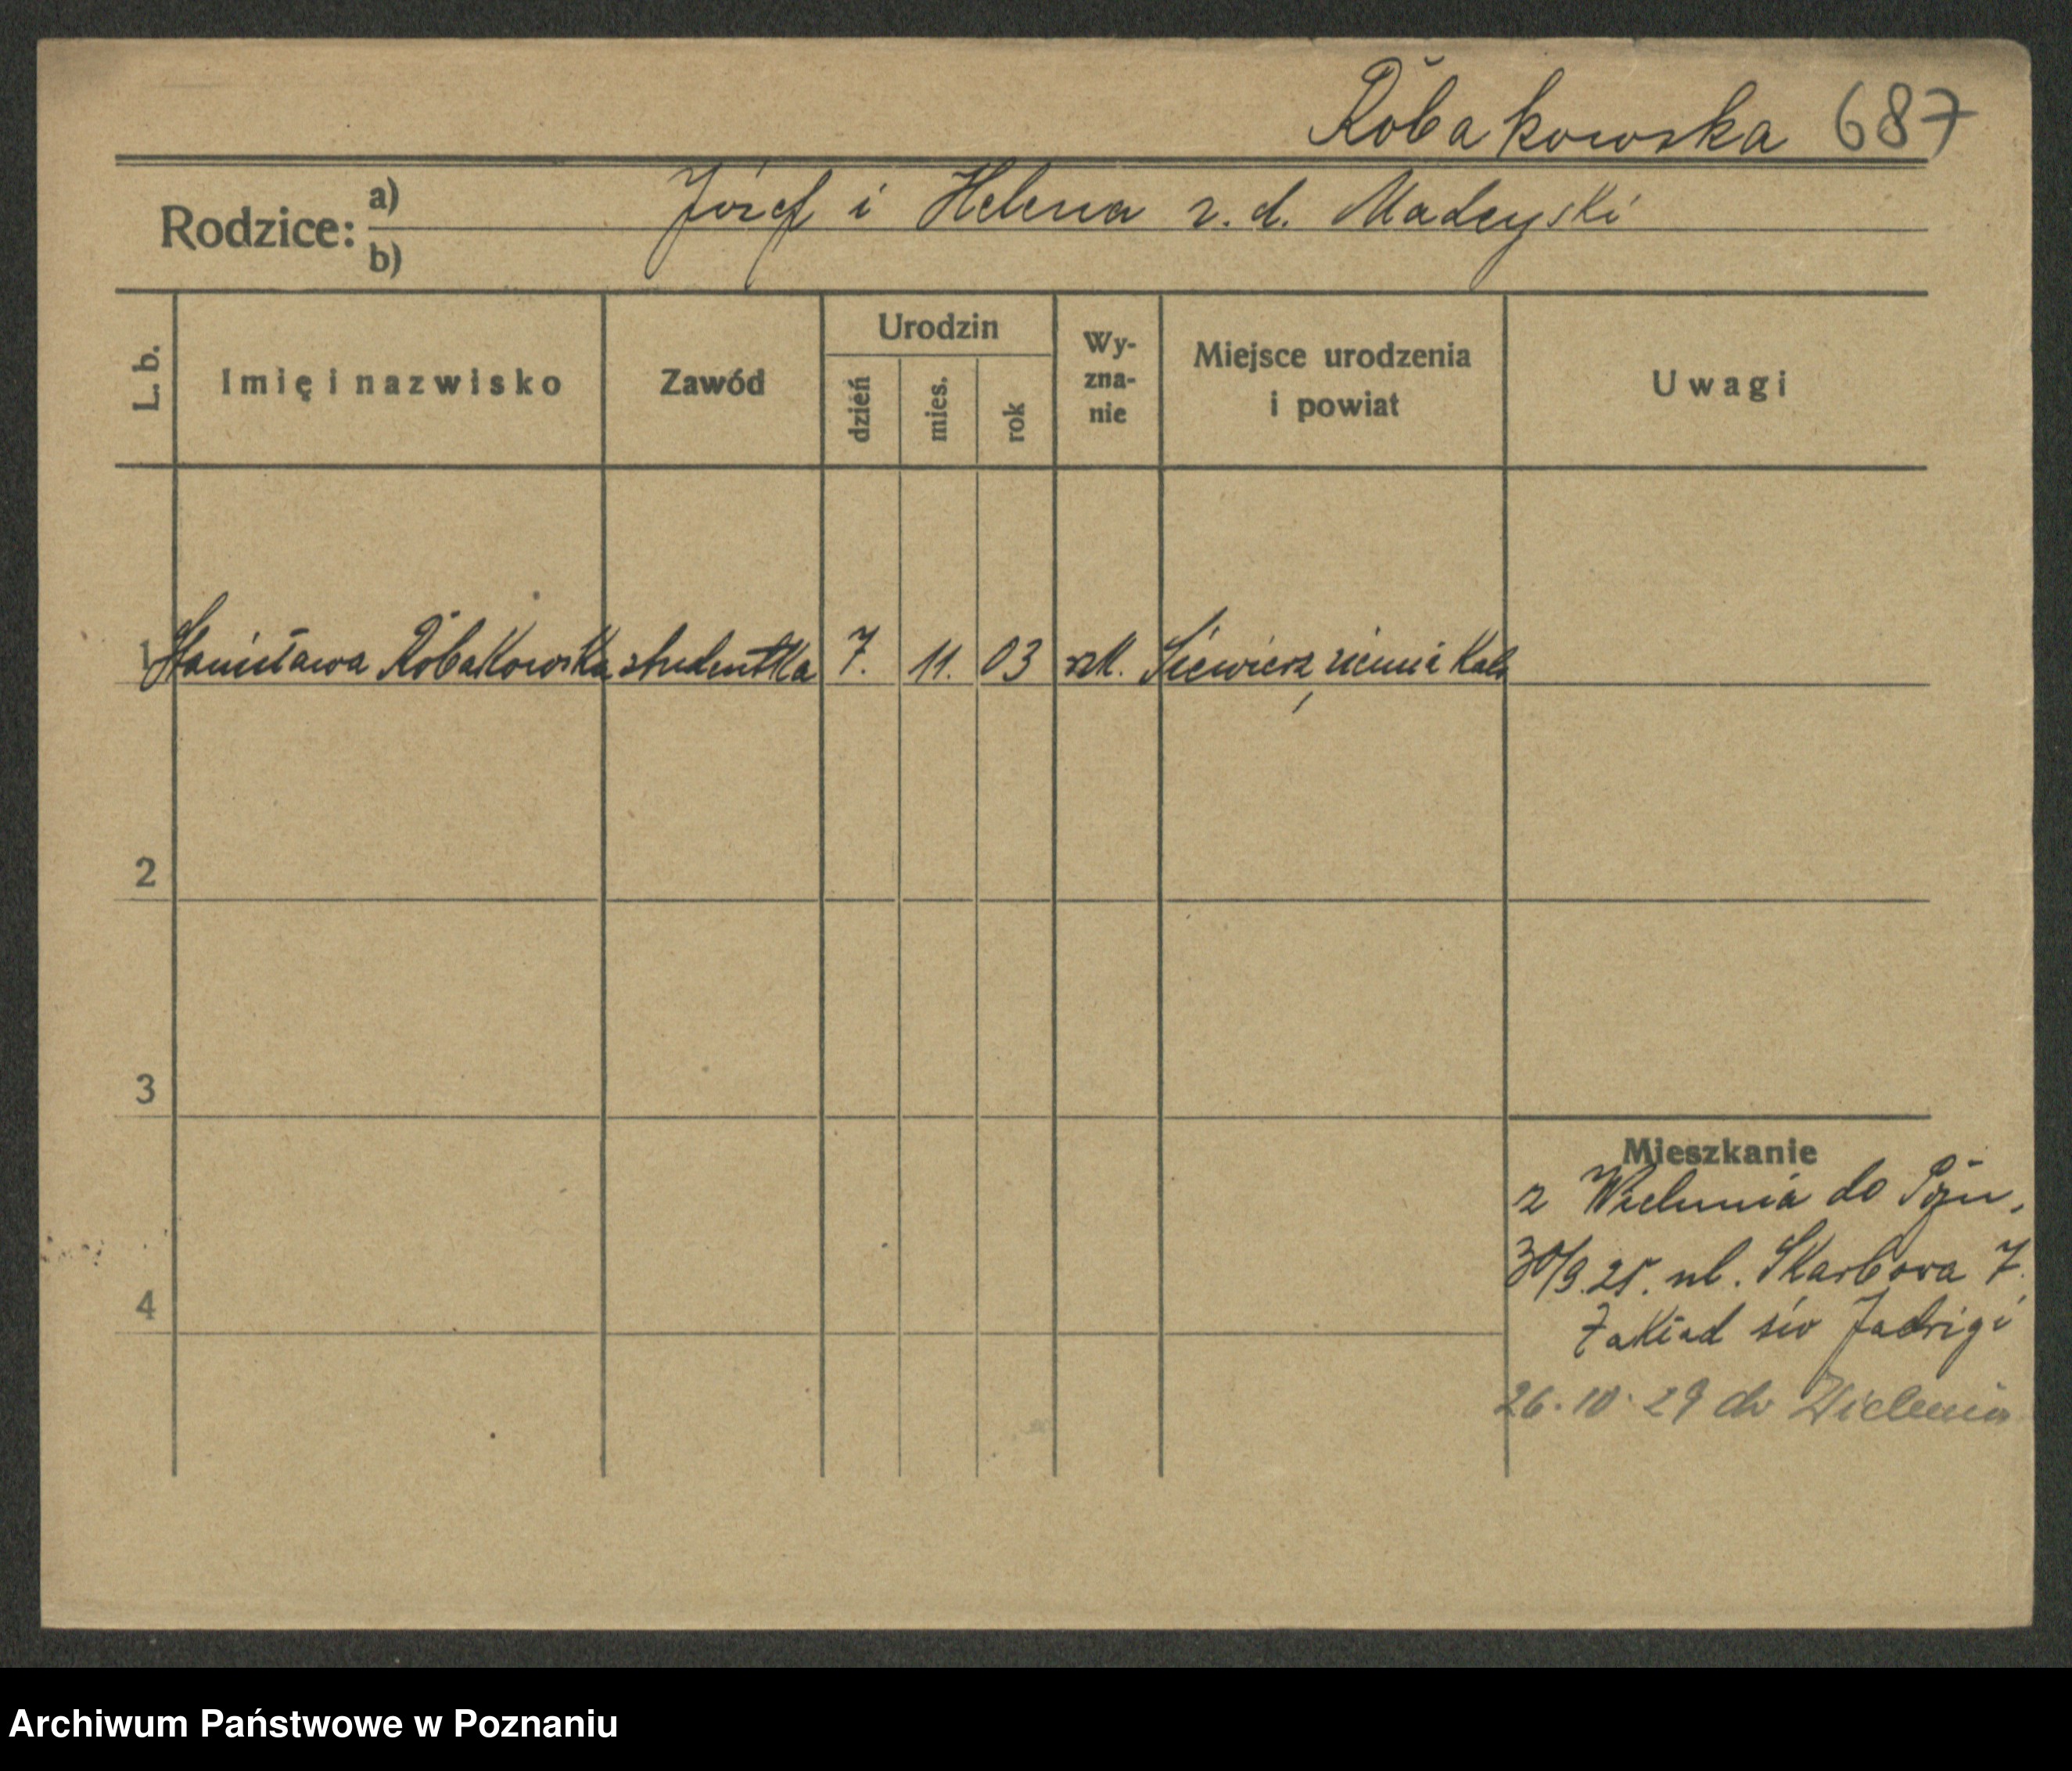 Robakowska 687
Rodzice: a) Józef i Helena z. d. Madeyski
b)
L. b. Imię i nazwisko Zawód Urodzin dzień mies. rok Wy-zna-nie Miejsce urodzenia i powiat Uwagi
1 Stanisława Robakowska studentka 7. 11. 03 rzk. Siewierz, ziemia Kal.
2
3
4
Mieszkanie
z Wielunia do Pozn.
30/9.25. ul. Skarbowa 7.
Zakład św Jadwigi
26.10.29 do Wielunia
Archiwum Państwowe w Poznaniu